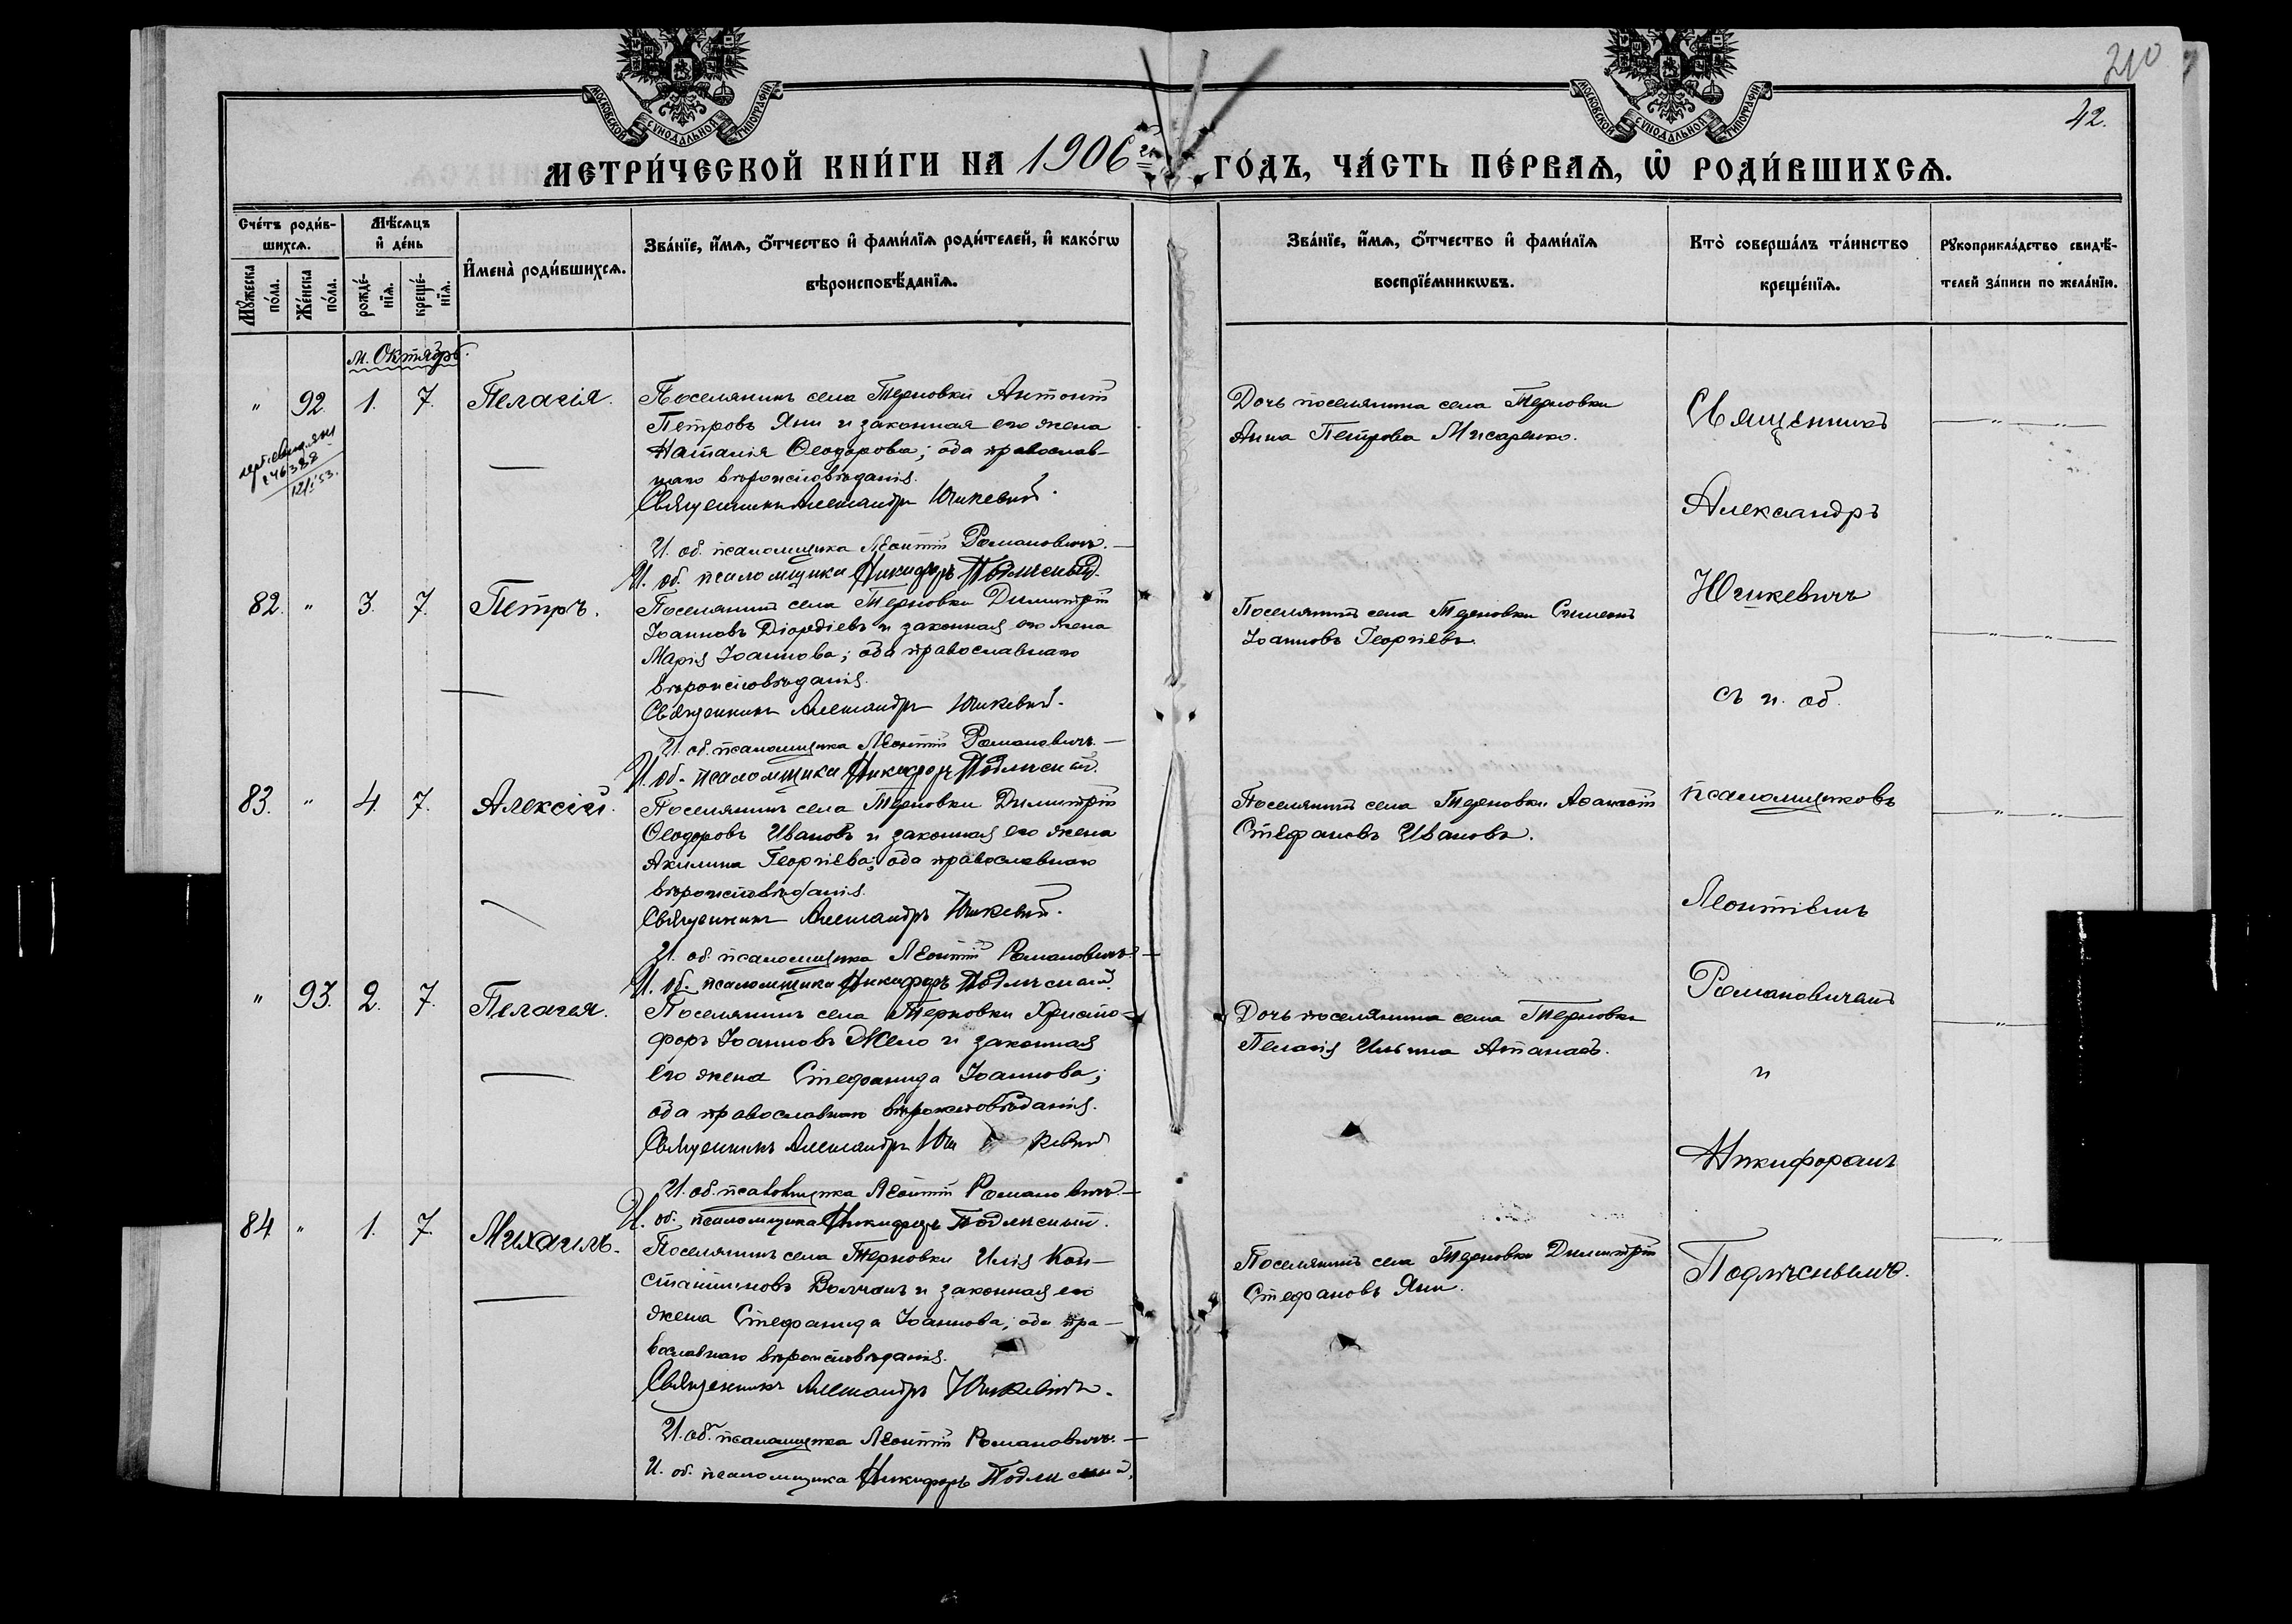 210
42.
МОСКОВСКОЙ СѴНОДАЛЬНОЙ ТИПОГРАФІИ
МОСКОВСКОЙ СѴНОДАЛЬНОЙ ТИПОГРАФІИ
МЕТРИ́ЧЕСКОЙ КНИ́ГИ НА 1906 ГО́ДЪ, ЧА́СТЬ ПЕ́РВАѦ, Ѡ҆ РОДИ́ВШИХСѦ.
Сче́тъ роди́в-
шихсѧ.
Мꙋ́жеска по́ла.
Же́нска по́ла.
Мѣ́сѧцъ
и҆ де́нь
рожде́-
нїѧ.
креще́-
нїѧ.
И҆мена̀ роди́вшихсѧ.
Зва́нїе, и҆́мѧ, ѻ҆́тчество и҆ фами́лїѧ роди́телей, и҆ како́гѡ
вѣроисповѣ́данїѧ.
Зва́нїе, и҆́мѧ, ѻ҆́тчество и҆ фами́лїѧ
воспрїе́мникѡвъ.
Кто̀ соверша́лъ та́инство
креще́нїѧ.
Рꙋкоприкла́дство свидѣ́-
телей за́писи по жела́нїю.
м. Октябрь.
" 92. 1. 7. Пелагія.
Поселянинъ села Терновки Антоній
Петровъ Яни и законная его жена
Наталія Ѳеодорова; оба православ-
наго вѣроисповѣданія.
Священникъ Александръ Юшкевичъ.
И. об. псаломщика Леонтій Романовичъ.
И. об. псаломщика Никифоръ Подлѣсный.
Дочь поселянина села Терновки
Анна Петрова Писаренко.
82. " 3. 7. Петръ.
Поселянинъ села Терновки Димитрій
Іоанновъ Діордіевъ и законная его жена
Марія Іоаннова; оба православнаго
вѣроисповѣданія.
Священникъ Александръ Юшкевичъ.
И. об. псаломщика Леонтій Романовичъ.
И. об. псаломщика Никифоръ Подлѣсный.
Поселянинъ села Терновки Симеонъ
Іоанновъ Георгіевъ.
83. " 4. 7. Алексій.
Поселянинъ села Терновки Димитрій
Ѳеодоровъ Ивановъ и законная его жена
Акилина Георгіева; оба православнаго
вѣроисповѣданія.
Священникъ Александръ Юшкевичъ.
И. об. псаломщика Леонтій Романовичъ.
И. об. псаломщика Никифоръ Подлѣсный.
Поселянинъ села Терновки
Стефановъ Ивановъ.
" 93. 2. 7. Пелагея.
Поселянинъ села Терновки Христо-
форъ Іоанновъ Жело и законная
его жена Стефанида Іоаннова;
оба православнаго вѣроисповѣданія.
Священникъ Александръ Юшкевичъ
И. об. псаломщика Леонтій Романовичъ.
И. об. псаломщика Никифоръ Подлѣсный.
Дочь поселянина села Терновки
Пелагія Ильина Атанасъ.
84. " 1. 7. Михаилъ.
Поселянинъ села Терновки Илія Кон-
стантиновъ Волчанъ и законная его
жена Стефанида Іоаннова; оба пра-
вославнаго вѣроисповѣданія.
Священникъ Александръ Юшкевичъ.
И. об. псаломщика Леонтій Романовичъ.
И. об. псаломщика Никифоръ Подлѣсный.
Поселянинъ села Терновки Димитрій
Стефановъ Яни.
Священникъ
Александръ
Юшкевичъ
съ и. об.
псаломщиковъ
Леонтіемъ
Романовичемъ
и
Никифоромъ
Подлѣснымъ.